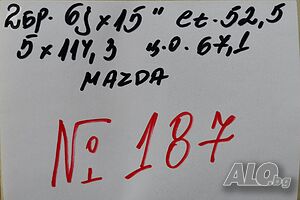 2бр. 6j x 15" et. 52,5
5 x 114,3 ц.о. 67,1
MAZDA
№ 187
ALO.bg